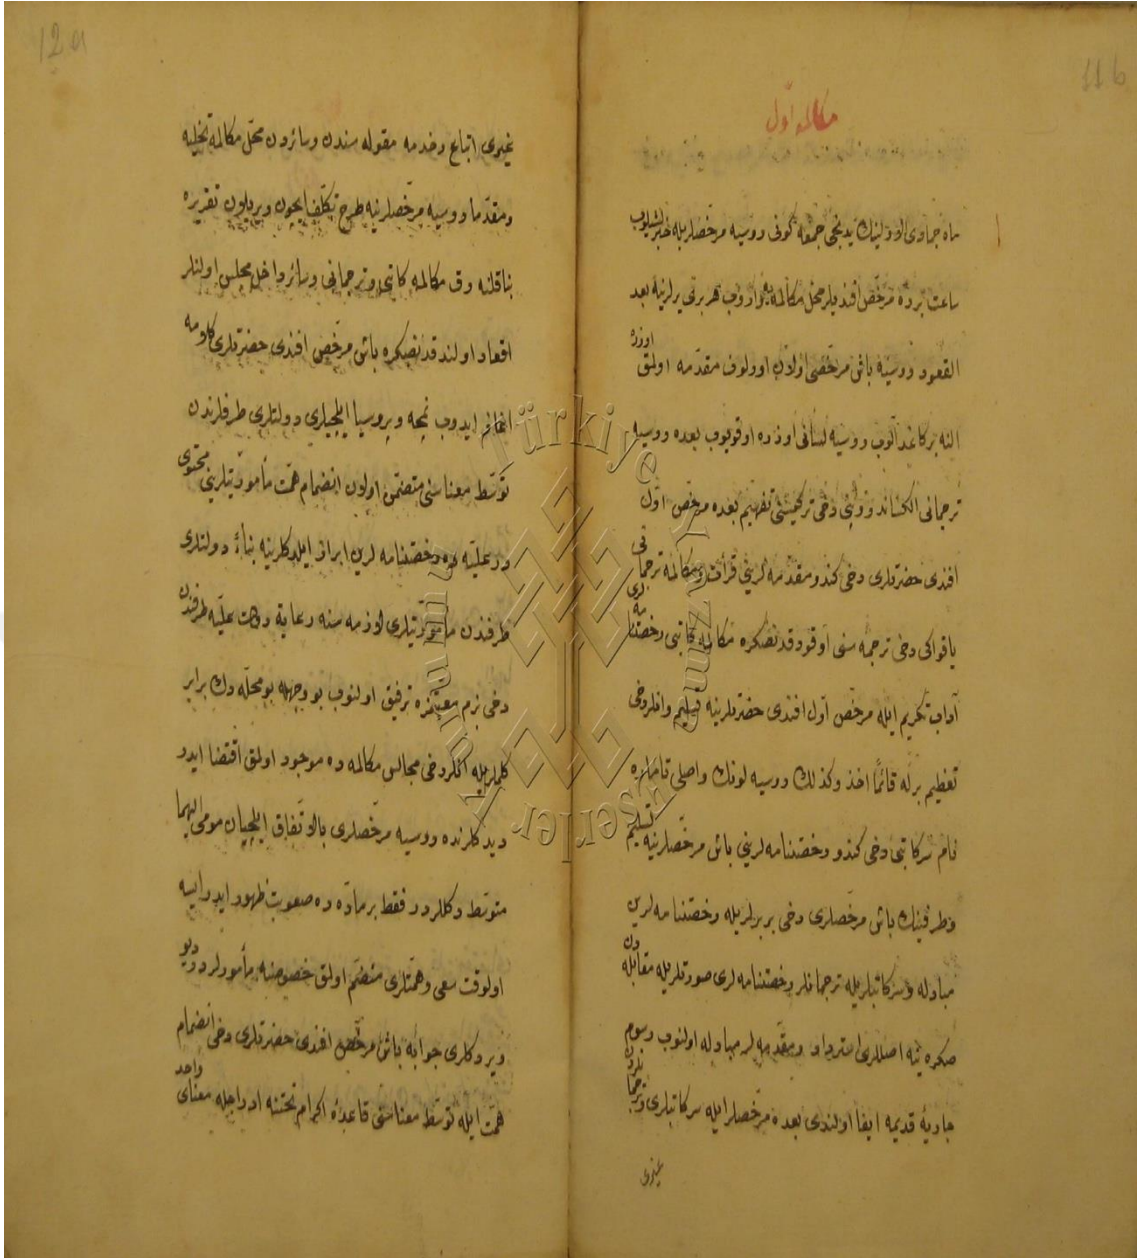 11b
مكالمهٔ اوّل
ماه جماوى الاولينك يدنجى جمعه كونى روسيه مرخصلريله خبرلشيلوب
ساعت برده مرخص افنديلر محل مكالمه يه واروب هر برى يرلرينه بعد
القعود روسيه باش مرخصى اولان اورلوف مقدمه اولمق اوزره
النه بر كاغد آلوب روسيه لسانى اوزره اوقويوب بعده روسيه
ترجمانى الكساندروويش دخى تركيسنى تفهيم بعده مرخص اول
افندى حضرتلرى دخى كندو مقدمه لرينى قرأت و مكالمه ترجمانى
ياقواكى دخى ترجمه سنى اوقودقدنصكره مكالمه كاتبى رخصتنامه لرى
آداب تكريم ايله مرخص اول افندى حضرتلرينه تسليم وانلر دخى
تعظيم برله قائماً اخذ وكذلك روسيه لونك واصلى قاماره
نام سركاتبى دخى كندو رخصتنامه لرينى باش مرخصلرينه تسليم
وطرفينك باش مرخصلرى دخى بربرلريله رخصتنامه لرين
مبادله وسركاتبلريله ترجمانلر رخصتنامه لرى صورتلريله مقابله دن
صكره ينه اصللرى استرداد ومقدمه لر مبادله اولنوب رسوم
جاريهٔ قديمه ايفا اولندى بعده مرخصلر ايله سركاتبلرى وترجمانلردن
غيرى
12a
غيرى اتباع وخدمه مقوله سندن وسائردن محل مكالمه تخليه
ومقدما روسيه مرخصلرينه طرح تكلف ايچون ويريلون تقريره
بناقلنه رق مكالمه كاتبى وترجمانى وسائر داخل مجلس اولنلر
اقعاد اولندقدنصكره باش مرخص افندى حضرتلرى كلامه
اغاز ايدوب نمچه وپروسيا ايلچيلرى دولتلرى طرفلرندن
توسط معناسنى متضمن اولان انضمام همت مأموريتلرينى محتوى
درعليه يه رخصتنامه لرين ابراز ايلدكلرينه بناءً دولتلرى
طرفندن مأموريتلرى لازمه سنه رعايةً دولت عليه طرفندن
دخى بزم معيتمزه ترفيق اولنوب بو وجهله بو محله دك برابر
كلملريله انلر دخى مجالس مكالمه ده موجود اولمق اقتضا ايدر
ديدكلرنده روسيه مرخصلرى بالاتفاق ايلچيان مومى اليهما
متوسط دكللردر فقط بر ماده ده صعوبت ظهور ايدر ايسه
اولوقت سعى وهمتلرى منضم اولمق خصوصنه مأمورلردر ديو
ويردكلرى جوابه باش مرخص افندى حضرتلرى دخى انضمام
همت ايله توسط معناسنى قاعدهٔ اكرام تحتنه ادراجله معناى واحد